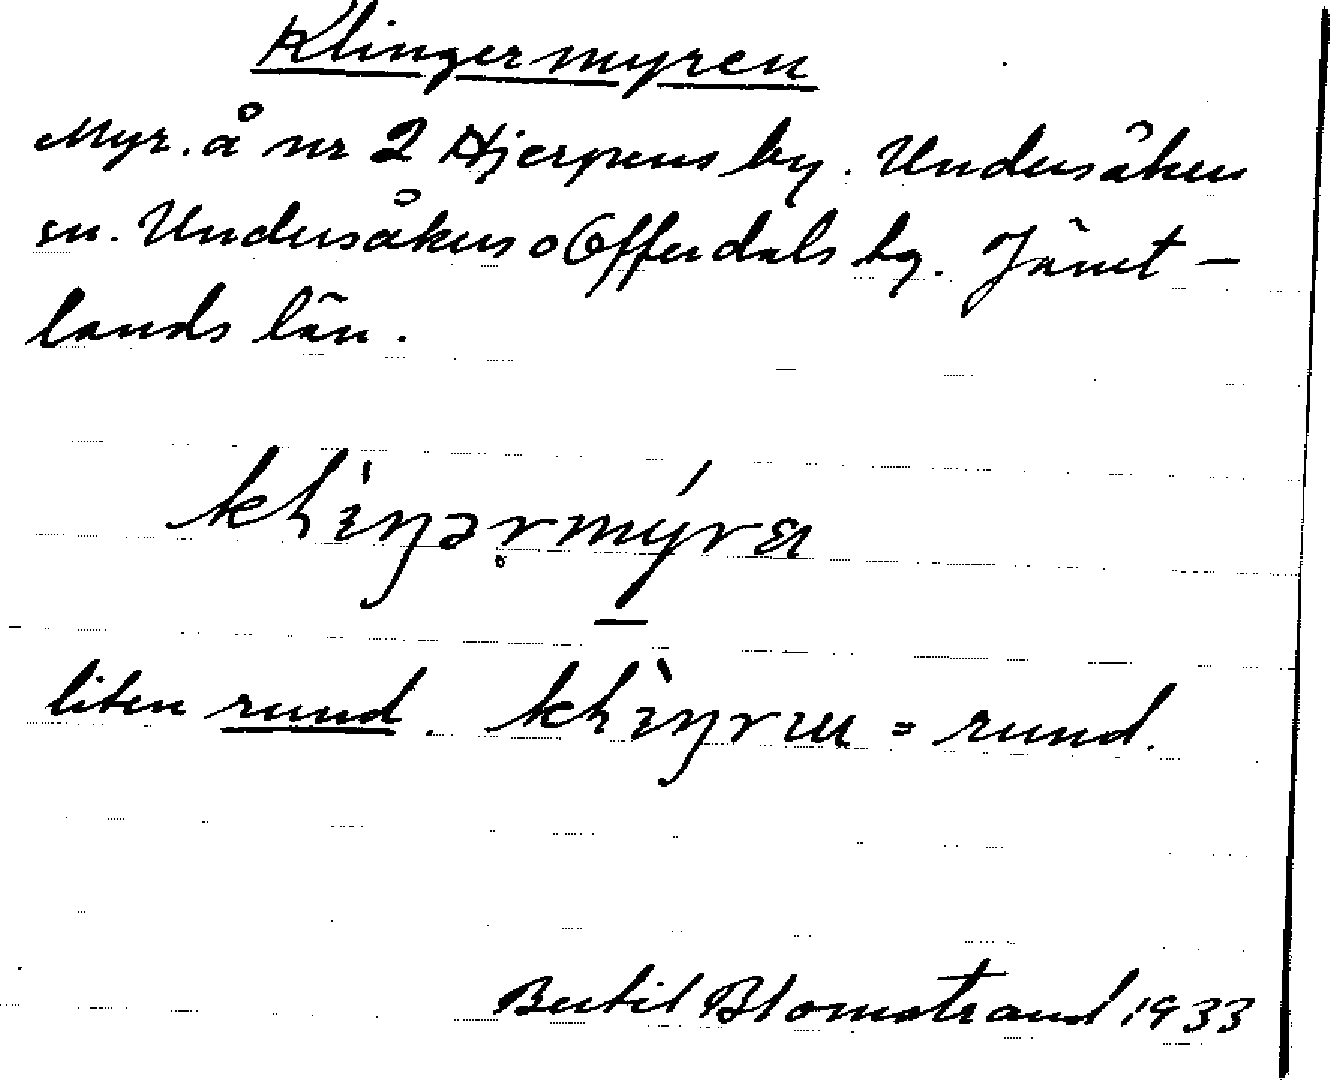 Klingermyren
Myr. å nr 2 Hjerpens by. Undersåkers
sn. Undersåkers o Offerdals tg. Jämt-
lands län.
liten rund. = rund.
Bertil Blomstrand 1933